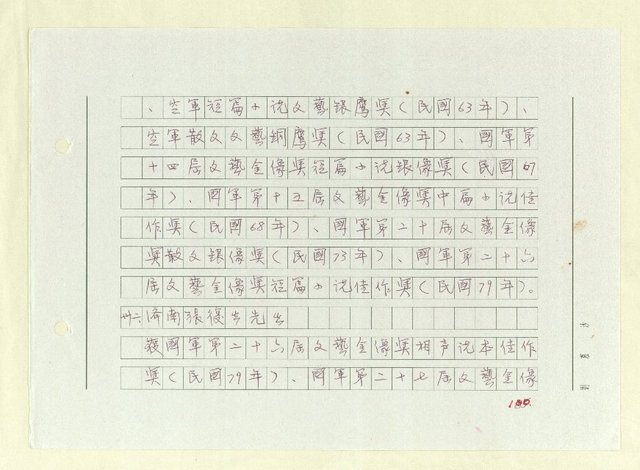 、空軍短篇小說文藝銀鷹獎(民國63年)、
空軍散文文藝銅鷹獎(民國63年)、國軍第
十四屆文藝金像獎短篇小說銀像獎(民國67
年)、國軍第十五屆文藝金像獎中篇小說佳
作獎(民國68年)、國軍第二十屆文藝金像
獎散文銀像獎(民國73年)、國軍第二十六
屆文藝金像獎短篇小說佳作獎(民國79年)。
卅六濟南張復生先生
獲國軍第二十六屆文藝金像獎相声說本佳作
獎(民國79年)、國軍第二十七屆文藝金像